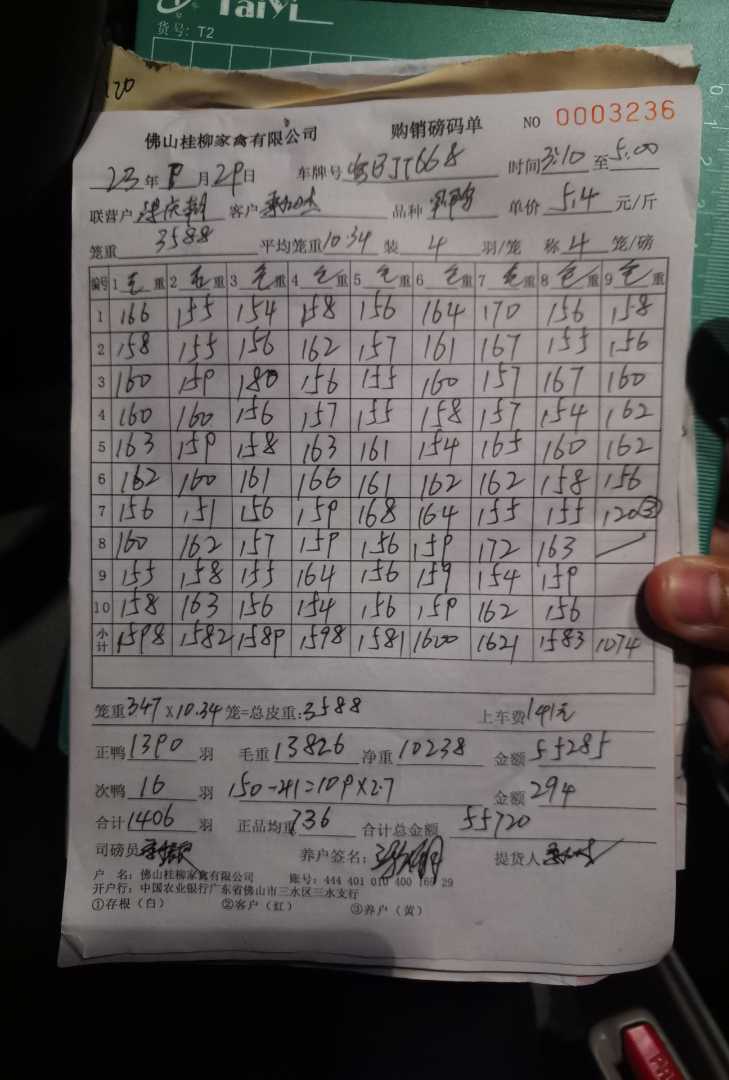 Taiyi
货号: T2
120
佛山桂柳家禽有限公司 购销磅码单 NO 0003236
23年 月29日 车牌号 JT668 时间3:10至5:00
联营户 客户 品种 单价5.4元/斤
笼重3588 平均笼重10.34装4羽/笼 称4笼/磅
编号 1毛重 2毛重 3毛重 4毛重 5毛重 6毛重 7毛重 8毛重 9毛重
1 166 155 154 158 156 164 170 156 158
2 158 155 156 162 157 161 167 155 156
3 160 159 180 156 155 160 157 167 160
4 160 160 156 157 155 158 157 154 162
5 163 159 158 163 161 154 165 160 162
6 162 160 161 166 161 162 162 158 156
7 156 151 156 159 168 164 155 155 120③
8 160 162 157 159 156 159 172 163
9 155 158 155 164 156 159 154 159
10 158 163 156 154 156 159 162 156
小计 1598 1582 1589 1598 1581 1600 1621 1583 1074
笼重347×10.34笼=总皮重:3588 上车费141元
正鸭1390羽 毛重13826净重10238 金额55285
次鸭16羽 150-41=109×2.7 金额294
合计1406羽 正品均重736 合计总金额55720
司磅员 养户签名: 提货人
户 名: 佛山桂柳家禽有限公司 账号: 444 401 010 400 169 29
开户行: 中国农业银行广东省佛山市三水区三水支行
①存根（白） ②客户（红） ③养户（黄）